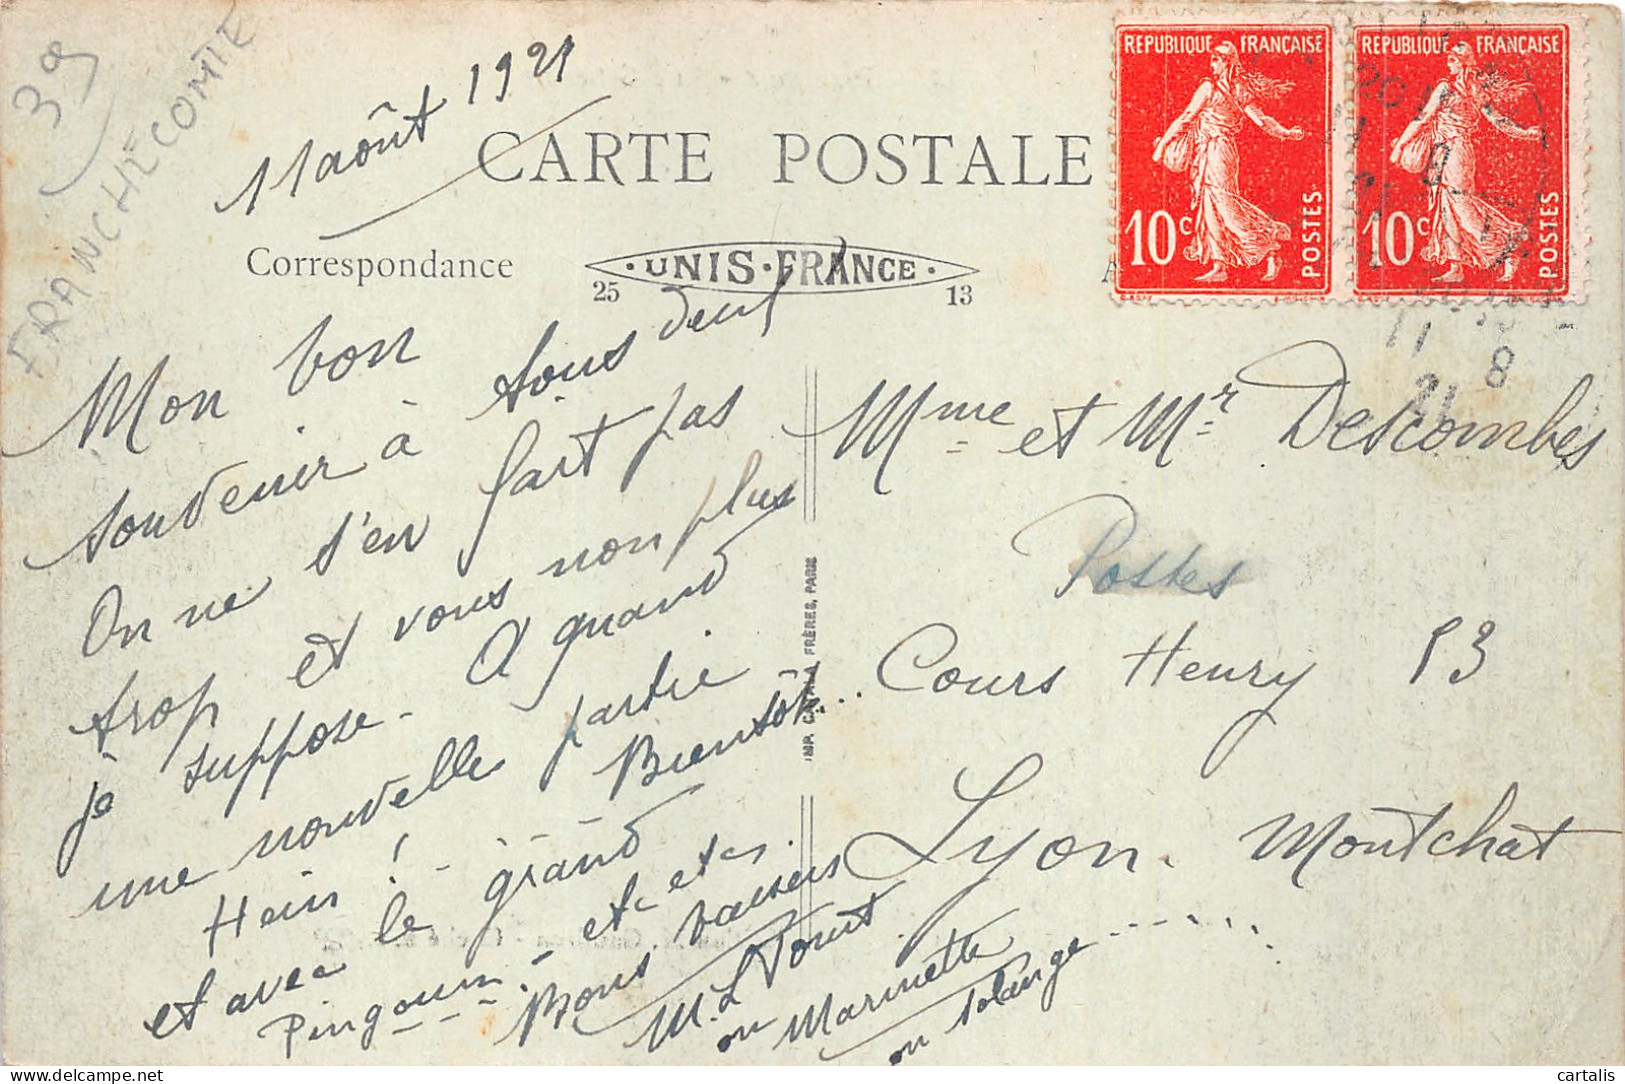 39
FRANCHE COMTE
11 août 1921
CARTE POSTALE
Correspondance
UNIS-FRANCE
25 13
RÉPUBLIQUE FRANÇAISE
10c POSTES
RÉPUBLIQUE FRANÇAISE
10c POSTES
11 8
21
Mon bon
souvenir à tous deux
On ne s'en fait pas
trop et vous non plus
je suppose - A quand
une nouvelle partie
Hein ! - Bientôt...
et avec le grand
Pingouin. etc etc.
Bons baisers
M. L
ou Marinette
ou Solange
IMP. FRÈRES, PARIS
Mme et Mr Descombes
Postes
Cours Henry 53
Lyon. Montchat
cartalis